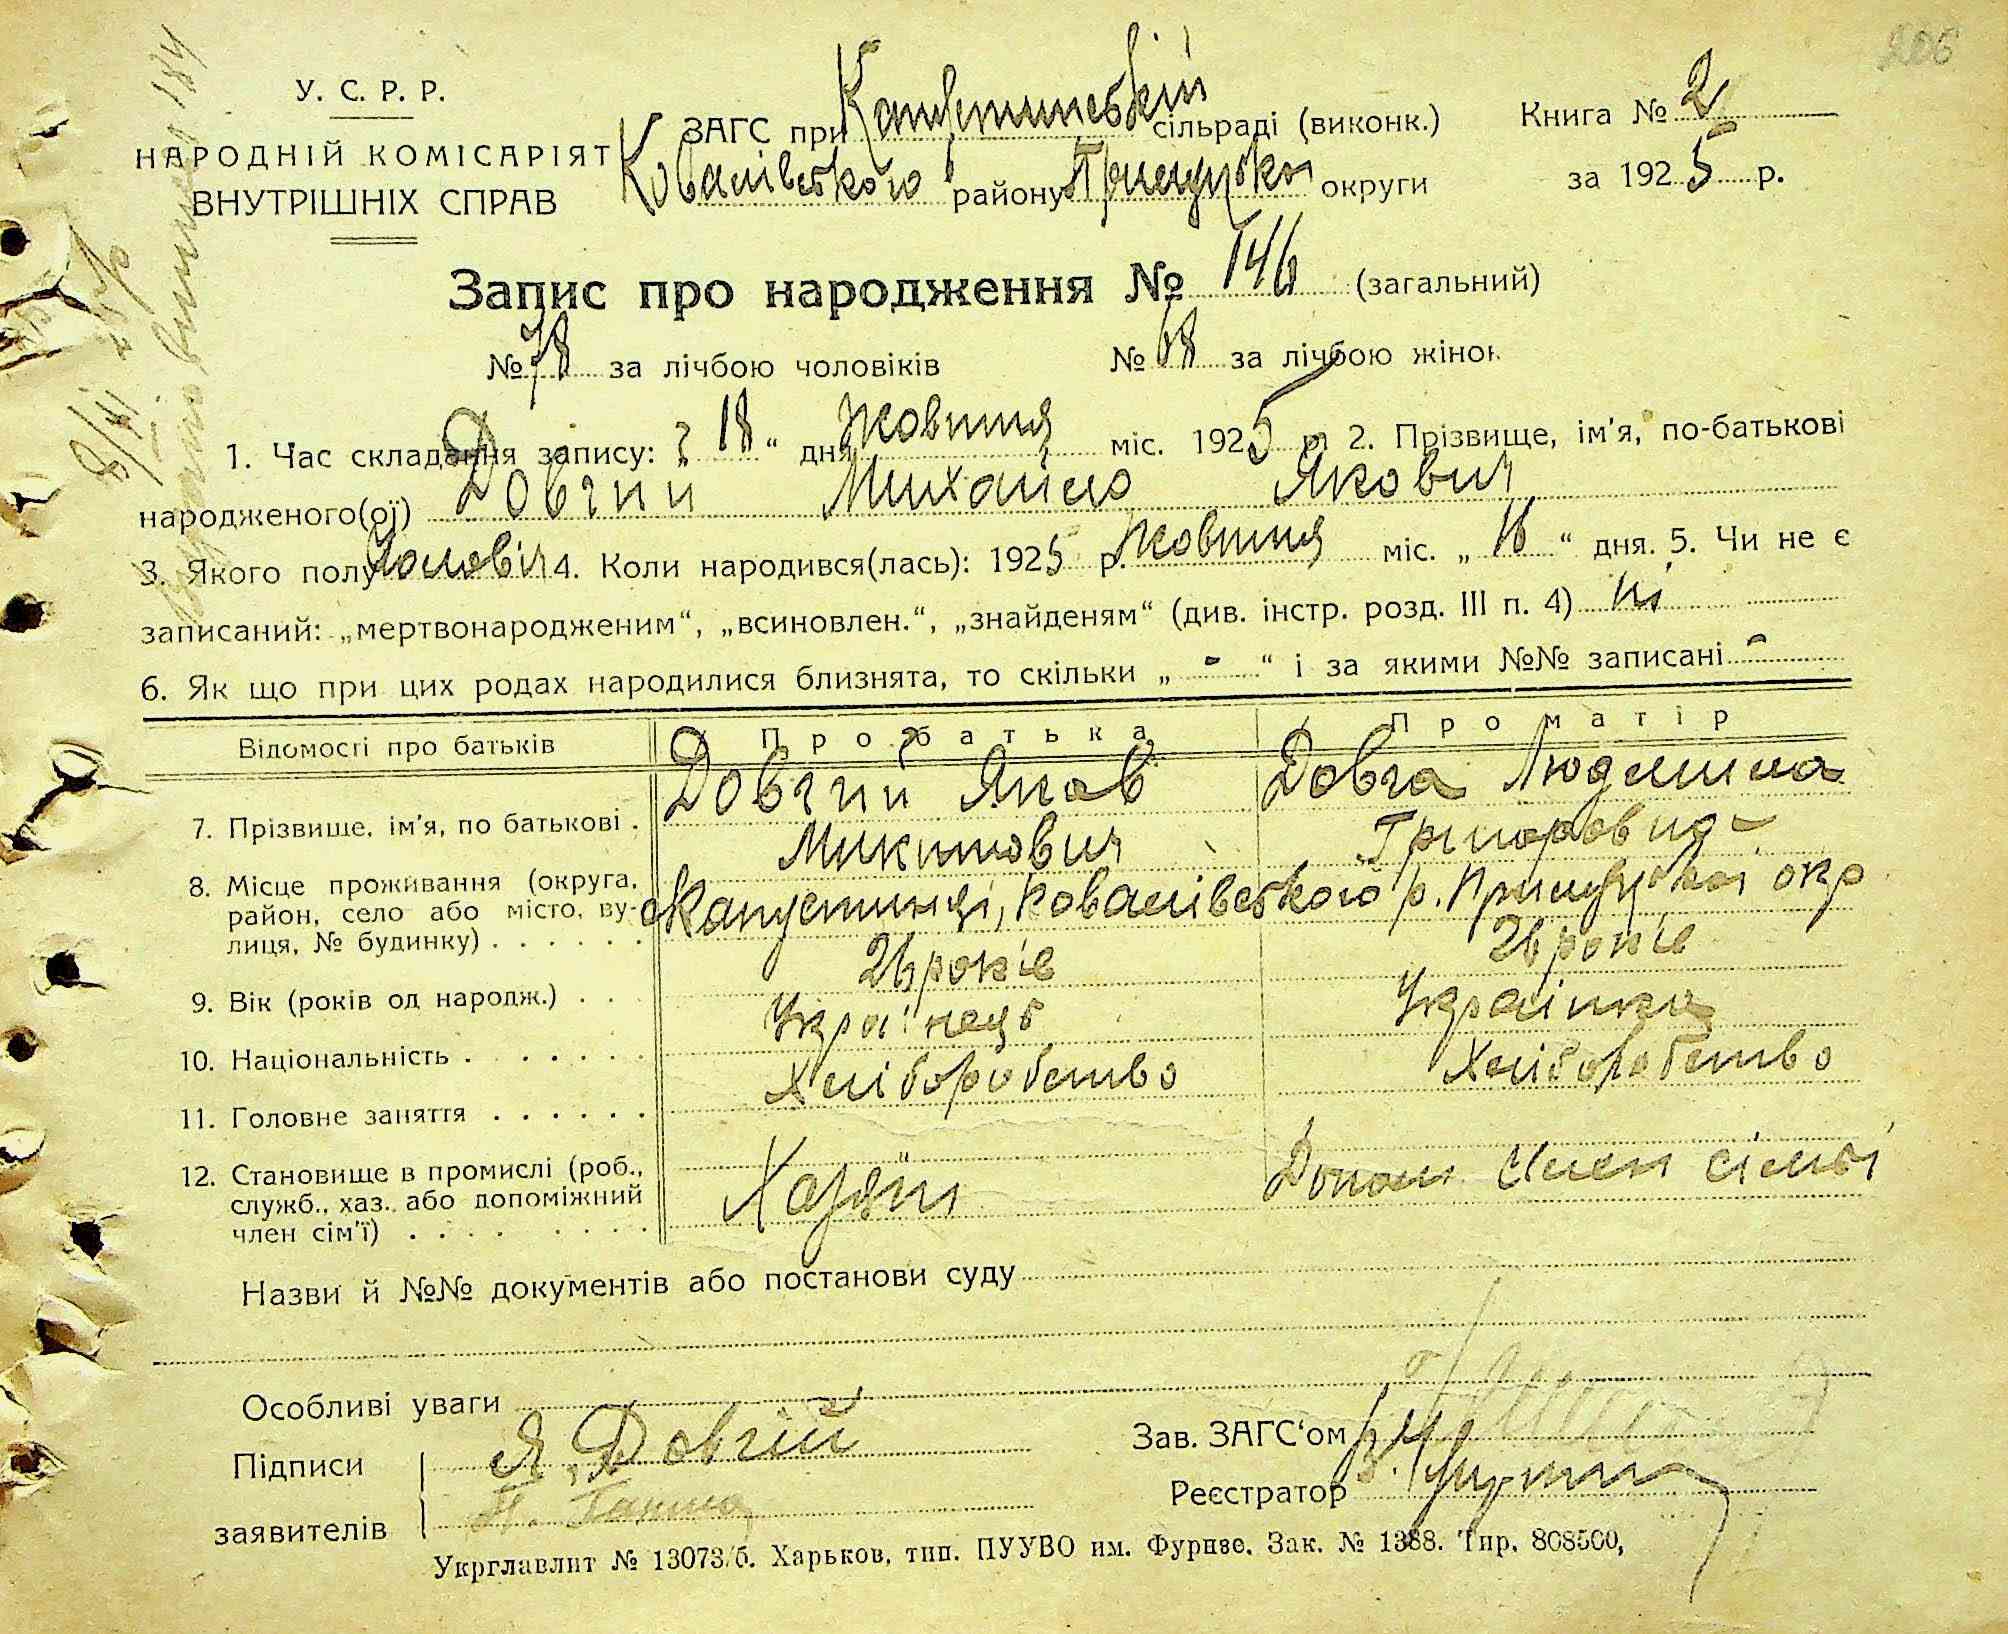 206
У. С. Р. Р.
НАРОДНІЙ КОМІСАРІЯТ
ВНУТРІШНІХ СПРАВ
ЗАГС при Капустинській сільраді (виконк.)
Ковалівського району Прилуцької округи
Книга № 2
за 1925 р.
Запис про народження № 146 (загальний)
№ 78 за лічбою чоловіків № 68 за лічбою жінок
1. Час складання запису: „ 18 “ дня Жовтня міс. 1925 р. 2. Прізвище, ім'я, по-батькові
народженого(ої) Довгий Михайло Якович
3. Якого полу Чоловіч 4. Коли народився(лась): 1925 р. Жовтня міс. „ 16 “ дня. 5. Чи не є
записаний: „мертвонародженим“, „всиновлен.“, „знайденям“ (див. інстр. розд. III п. 4) ні
6. Як що при цих родах народилися близнята, то скільки „ - “ і за якими №№ записані -
Відомості про батьків Про батька Про матір
7. Прізвище, ім'я, по батькові . Довгий Яков Микитович Довга Людмила Григоровна
8. Місце проживання (округа,
район, село або місто, ву-
лиця, № будинку) . . . . . . Капустинці, Ковалівського р. Прилуцької окр
9. Вік (років од народж.) . . . 26 років 26 років
10. Національність . . . . . . Українець Українка
11. Головне заняття . . . . . . Хліборобство Хліборобство
12. Становище в промислі (роб.,
служб., хаз. або допоміжний
член сім'ї) . . . . . . . . Хазяїн Допом член сімьі
Назви й №№ документів або постанови суду
Особливі уваги
Підписи
заявителів
Я. Довгій
Зав. ЗАГС'ом
Реєстратор
Укрглавлит № 13073/б. Харьков, тип. ПУУВО им. Фрунзе. Зак. № 1388. Тир. 808500,